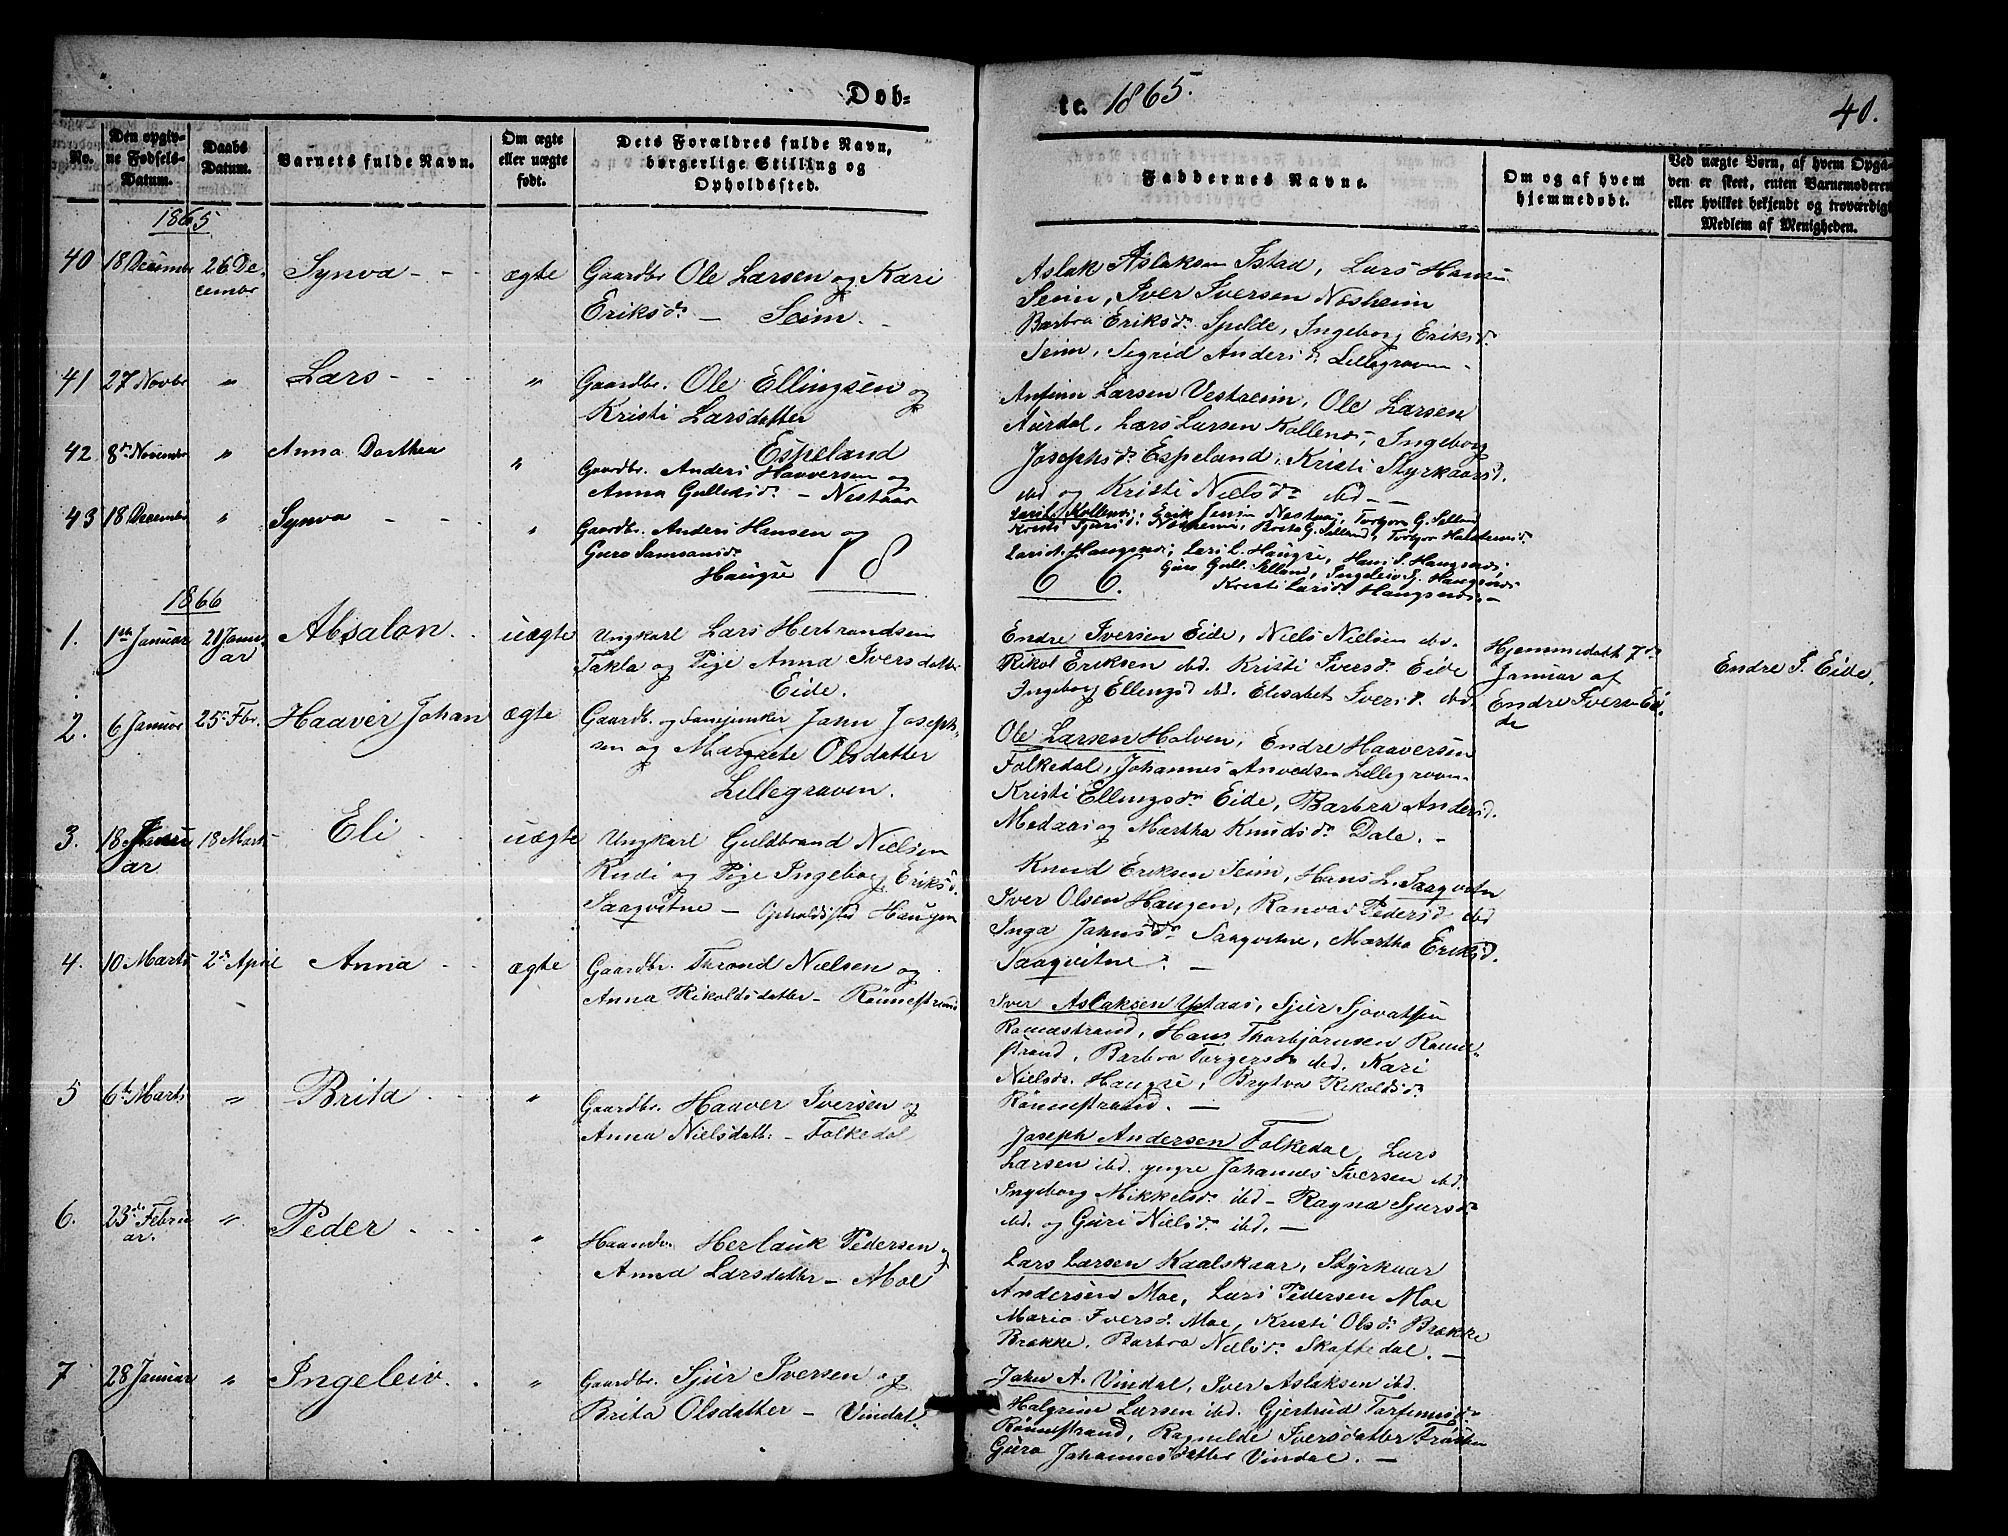 Døb=
te. 1865.
40.
No.
Den opgiv-
ne Fødsels-
Datum.
Daabs
Datum.
Barnets fulde Navn.
Om ægte
eller uægte
født.
Dets Forældres fulde Navn,
borgerlige Stilling og
Opholdssted.
Faddernes Navne.
Om og af hvem
hjemmedøbt.
Ved uægte Børn, af hvem Opga-
ven er skeet, enten Barnemoderen
eller hvilket bekjendt og troværdigt
Medlem af Menigheden.
1865
40 18 Decembr 26 De-
cembr
Synva - - ægte
Gaardbr. Ole Larsen og Kari
Eriksd. — Seim. -
Aslak Aslaksen Istad, Lars Hansen
Seim, Iver Iversen Nesheim
Barbra Eriksd. Spilde, Ingeborg Eriksd.
Seim, Sigrid Andersd. Lillegraven -
41 27 Novbr " Lars - - - "
Gaardbr. Ole Ellingsen og
Kristi Larsdatter
Espeland
Anfinn Larsen Vestreim, Ole Larsen
Aurdal, Lars Larsen Kollenæs, Ingeborg
Josephsd. Espeland, Kristi Styrkaarsd.
ibd og Kristi Nielsd. ibd - -
42 8de November " Anna Dorthea "
Gaardbr. Anders Haaversen og
Anna Gullesd. - Nestaas
43 18 Decembr " Synva - - "
Gaardbr. Anders Hansen og
Guro Samsonsd.
Haugse
18
Kristi Larsd. Haugsnæs -
66.
1866
1. 1ste Januar 21 Janu-
ar
Absalon. - uægte
Ungkarl Lars Herbrandsen
Takla og Pige Anna Iversdatter
Eide.
Endre Iversen Eide, Niels Nielsen ibd.
Rikol Eriksen ibd. Kristi Iversd. Eide
Ingeborg Ellingsd ibd. Elisabet Iversd. ibd.
Hjemmedøbt 7de
Januar af
Endre Iversen Ei-
de
Endre I. Eide.
2. 6 Januar 25de Fbr. Haaver Johan ægte
Gaardb. og Fanejunker John Joseph-
sen og Margrete Olsdatter
Lillegraven.
Ole Larsen Holven, Endre Haaversen
Folkedal, Johannes Anvedsen Lillegraven
Kristi Ellingsd. Eide, Barbra Andersd.
Medaas og Martha Knudsd. Dale. -
3. 18 Janu-
ar
18 Marts
Eli - uægte
Ungkarl Guldbrand Nielsen
Rudi og Pige Ingeborg Eriksd.
Saaqvitne - Opholdssted Haugen
Knud Eriksen Seim, Hans L. Saaqvitne
Iver Olsen Haugen, Ranvei Pedersd. ibd
Inga Johnsd. Saaqvitne, Martha Eriksd.
Saaqvitne. -
4. 10 Marts 2den April Anna - - ægte
Gaardbr. Thrond Nielsen og
Anna Rikoldsdatter - Rønnestrand
Iver Aslaksen Ystaas, Sjur Sjovatsen
Rønnestrand, Hans Thorbjørnsen Rønne-
strand, Barbra Torgersd. ibd. Kari
Nielsd. Haugse, Brytva Rikoldsd.
Rønnestrand. -
5 6te Marts " Brita - - "
Gaardbr. Haaver Iversen og
Anna Nielsdatt. - Folkedal
Joseph Andersen Folkedal, Lars
Larsen ibd. yngre Johannes Iversen ibd.
Ingeborg Mikkelsd. ibd - Ragna Sjursd.
ibd. og Guri Nielsd. ibd. -
6. 23de Febru-
ar.
" Peder - - - "
Haandv. Herlauk Pedersen og
Anna Larsdatter - Moe
Lars Larsen Kaalskaar, Styrkaar
Andersen Moe, Lars Pedersen Moe
Maria Iversd. Moe, Kristi Olsd. Brække
Brække, Barbra Nielsd. Skaftedal. -
7 28 Januar " Ingeleiv. - "
Gaardbr. Sjur Iversen og
Brita Olsdatter - Vindal.
John A. Vindal, Iver Aslaksen ibd.
Halgrim Larsen ibd. Gjertrud Torfinnsd.
Rønnestrand, Ragnilde Iversdatter
Guro Johannesdatter Vindal. -